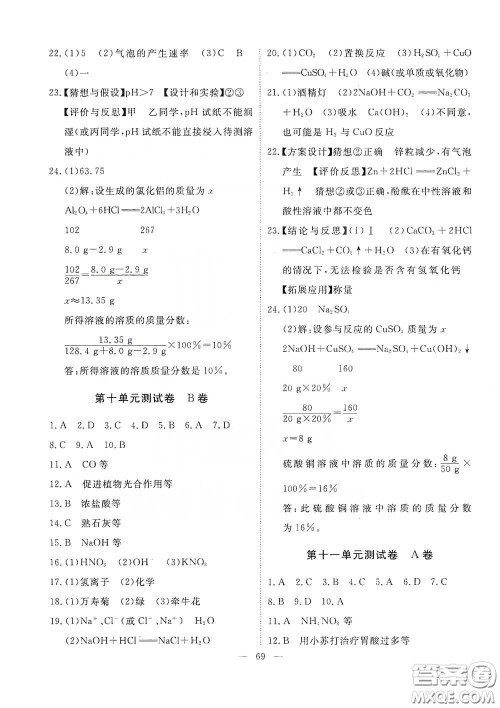 22. (1)5 (2)气泡的产生速率 (3)C B
(4)一
23.【猜想与假设】pH＞7 【设计和实验】②③
【评价与反思】甲 乙同学，pH 试纸不能润
湿(或丙同学，pH 试纸不能直接浸入待测溶
液中)
24. (1)63.75
(2)解：设生成的氯化铝的质量为 x
Al₂O₃+6HCl══2AlCl₃+3H₂O
102 267
8.0 g-2.9 g x
102/267=(8.0 g-2.9 g)/x
x≈13.35 g
所得溶液的溶质的质量分数：
13.35 g/(128.4 g+8.0 g-2.9 g)×100%=10%
答：所得溶液的溶质的质量分数为10%。
第十单元测试卷 B卷
1. A 2. D 3. C 4. B 5. A 6. D 7. D
8. C 9. A 10. D
11. A CO等
12. A 促进植物光合作用等
13. B 浓盐酸等
14. C 熟石灰等
15. B NaOH等
16. (1)HNO₃ (2)OH⁻ (3)KNO₃
17. (1)氢离子 (2)化学
18. (1)万寿菊 (2)绿 (3)牵牛花
19. (1)Na⁺、Cl⁻(或 Na⁺、Cl⁻、H⁺等)
(2)NaOH+HCl══NaCl+H₂O
20. (1)CO₂ (2)置换反应 (3)H₂SO₄+CuO
══CuSO₄+H₂O (4)碱(或单质或氧化物)
21. (1)酒精灯 (2)2NaOH+CO₂══Na₂CO₃
+H₂O (3)吸水 Ca(OH)₂ (4)不同意，
也可能是 H₂ 与 CuO 反应
22.【方案设计】猜想②正确 锌粒减少，有气泡
产生 【评价反思】Zn+2HCl══ZnCl₂+
H₂↑ 猜想②或③正确，酚酞在中性溶液和
酸性溶液中都不变色
23.【结论与反思】(1)Ⅰ (2)CaCO₃+2HCl
══CaCl₂+CO₂↑+H₂O (3)在有氧化钙
的情况下，无法检验是否含有氢氧化钙
【拓展应用】称量
24. (1)20 Na₂SO₄
(2)解：设参与反应的 CuSO₄ 质量为 x
2NaOH+CuSO₄══Na₂SO₄+Cu(OH)₂↓
80 160
20 g×20% x
80/(20 g×20%)=160/x
x=8 g
硫酸铜溶液中溶质的质量分数：8 g/50 g×
100%=16%
答：此硫酸铜溶液中溶质的质量分数
为16%。
第十一单元测试卷 A卷
1. A 2. C 3. B 4. D 5. D 6. C 7. B
8. C 9. D 10. A
11. A NH₄NO₃等
12. B 用小苏打治疗胃酸过多等
69
答案圈
MXQE.COM